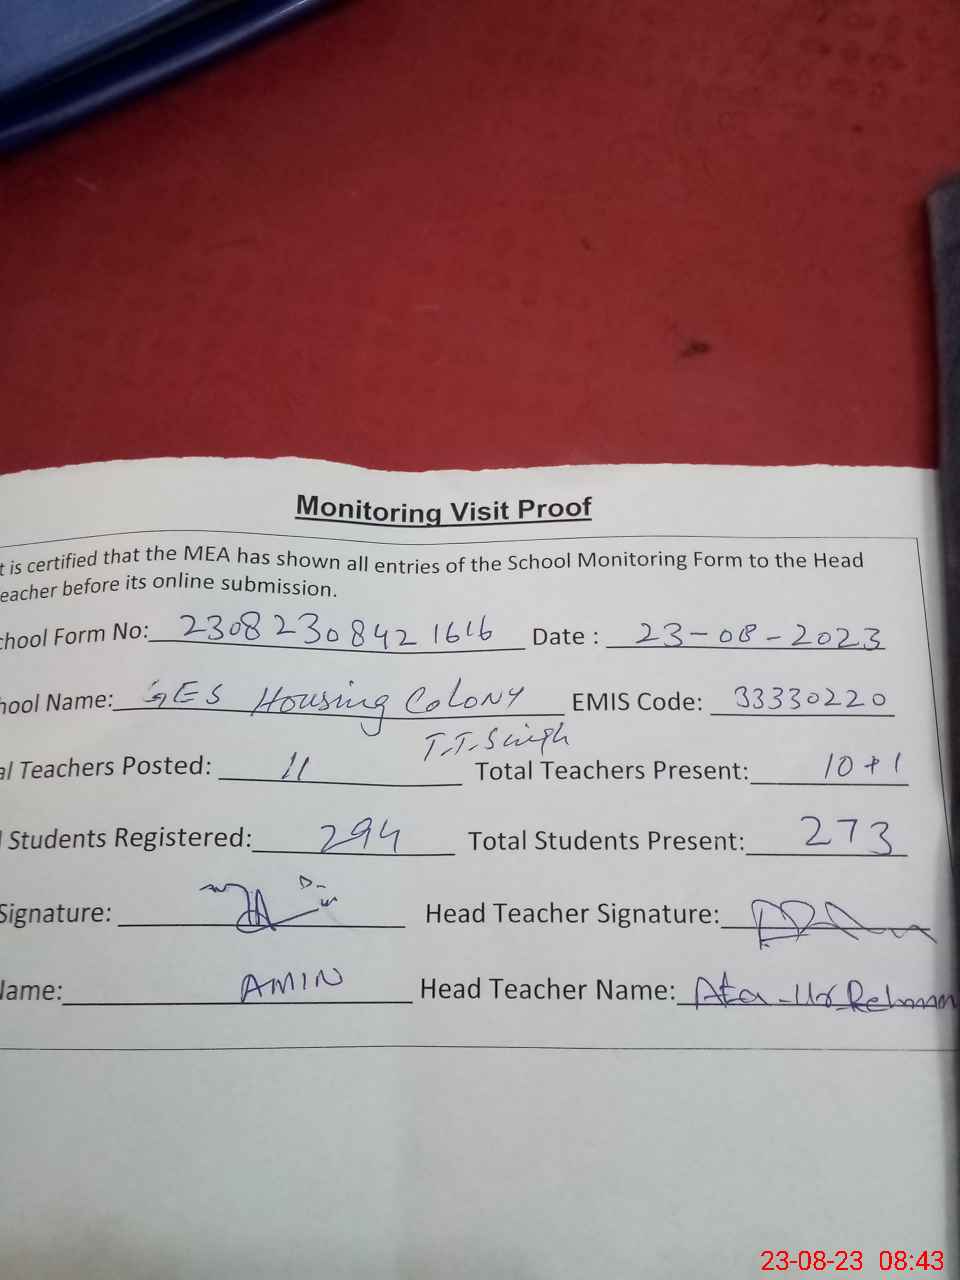 Monitoring Visit Proof
t is certified that the MEA has shown all entries of the School Monitoring Form to the Head
eacher before its online submission.
chool Form No: 2308230842 1616 Date : 23-08-2023
hool Name: GES Housing Colony EMIS Code: 33330220
T.T.Singh
al Teachers Posted: 11 Total Teachers Present: 10+1
l Students Registered: 294 Total Students Present: 273
Signature: Head Teacher Signature:
Name: AMIN Head Teacher Name: Ata-Ur-Rehman
23-08-23 08:43